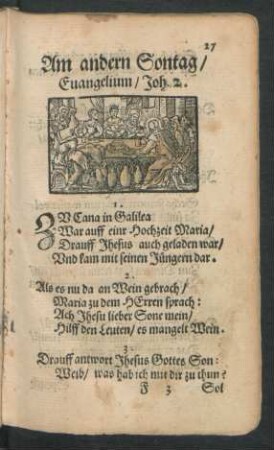 27
Am andern Sontag/
Euangelium/ Joh. 2.
1.
ZV Cana in Galilea
War auff einr Hochzeit Maria/
Drauff Jhesus auch geladen war/
Vnd kam mit seinen Jüngern dar.
2.
Als es nu da an Wein gebrach/
Maria zu dem HErren sprach:
Ach Jhesu lieber Sone mein/
Hilff den Leuten/ es mangelt Wein.
3.
Drauff antwort Jhesus Gottes Son:
Weib/ was hab ich mit dir zu thun?
F 3 Sol